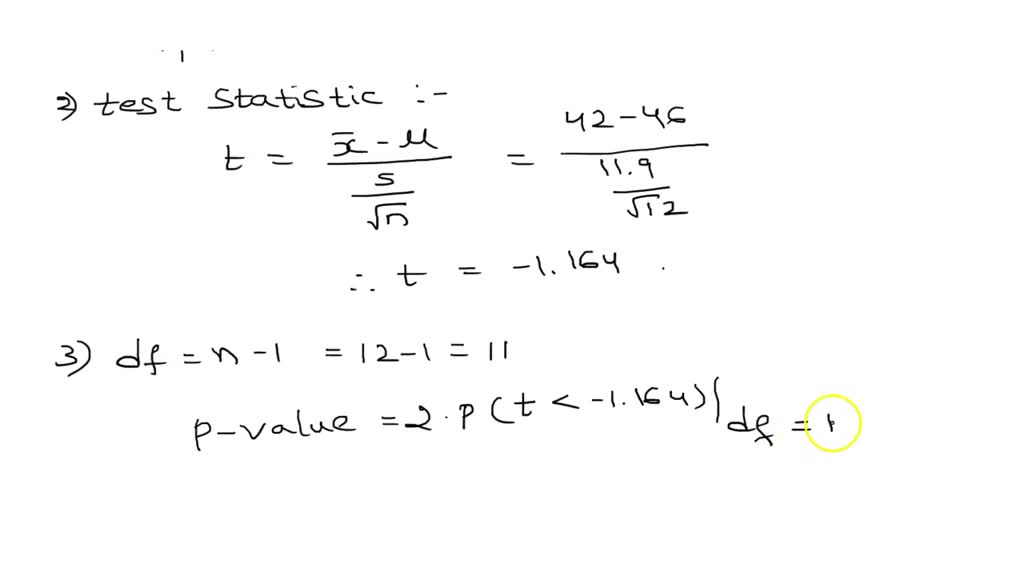 2) test statistic :-
t = (x̄ - μ) / (s / √n) = (42 - 46) / (11.9 / √12)
∴ t = -1.164 .
3) df = n - 1 = 12 - 1 = 11
p-value = 2 · P ( t < -1.164 ) | df =